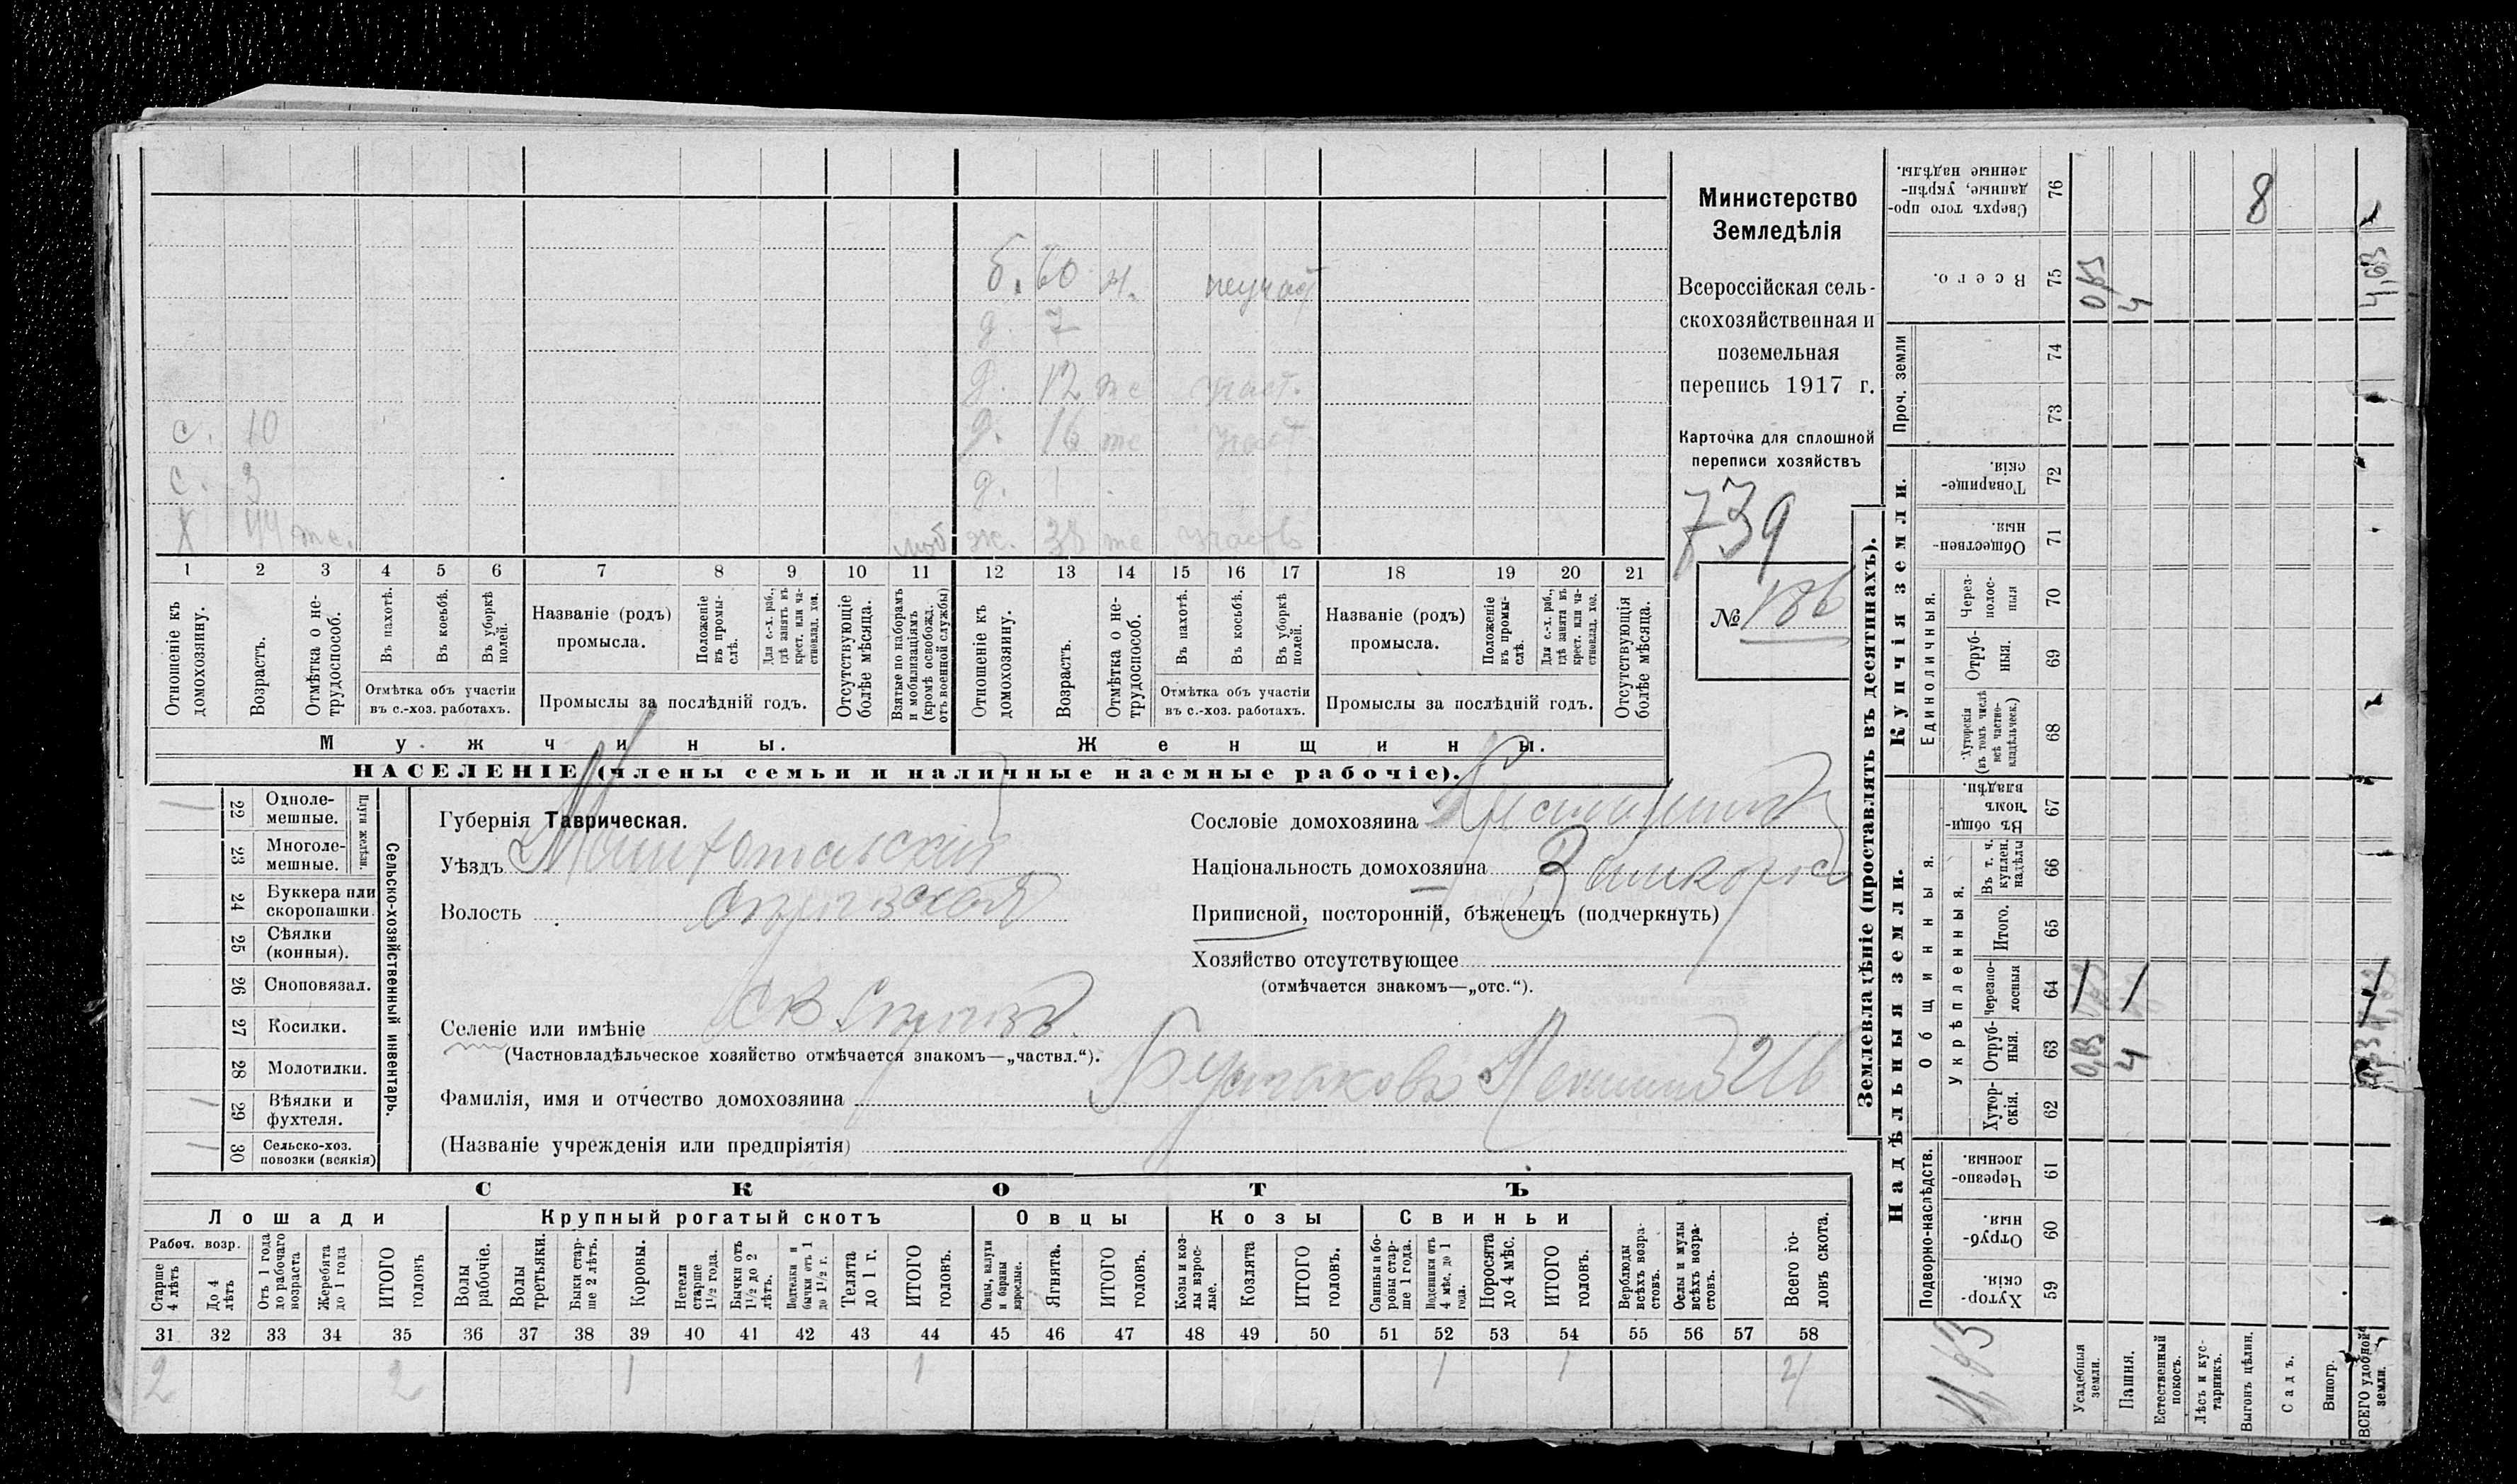 б. 60 н. неучаст
д. 7
д. 12 же участ.
с. 10 д. 16 же участ.
с. 3 д. 1
х 44 же. моб ж. 38 же участв
1 2 3 4 5 6 7 8 9 10 11 12 13 14 15 16 17 18 19 20 21
Отношеніе къ домохозяину.
Возрастъ.
Отмѣтка о не-трудоспособ.
Въ пахотѣ.
Въ косьбѣ.
Въ уборкѣ полей.
Отмѣтка объ участіи въ с.-хоз. работахъ.
Названіе (родъ) промысла.
Положеніе въ промы-слѣ.
Для с.-х. раб., гдѣ занятъ въ крест. или ча-стновлад. хоз.
Промыслы за послѣдній годъ.
Отсутствующіе болѣе мѣсяца.
Взятые по наборамъ и мобилизаціямъ (кромѣ освобожд. отъ военной службы)
Отношеніе къ домохозяину.
Возрастъ.
Отмѣтка о не-трудоспособ.
Въ пахотѣ.
Въ косьбѣ.
Въ уборкѣ полей.
Отмѣтка объ участіи въ с.-хоз. работахъ.
Названіе (родъ) промысла.
Положеніе въ промы-слѣ.
Для с.-х. раб., гдѣ занята въ крест. или ча-стновлад. хоз.
Промыслы за послѣдній годъ.
Отсутствующія болѣе мѣсяца.
Мужчины.
Женщины.
НАСЕЛЕНІЕ (члены семьи и наличные наемные рабочіе).
Министерство
Земледѣлія
Всероссійская сель-
скохозяйственная и
поземельная
перепись 1917 г.
Карточка для сплошной
переписи хозяйствъ
739
№ 186
22 Одноле-мешные. 1
23 Многоле-мешные.
Плуги желѣзн.
24 Буккера или скоропашки.
25 Сѣялки (конныя).
26 Сноповязал.
27 Косилки.
28 Молотилки.
29 Вѣялки и фухтеля. 1
30 Сельско-хоз. повозки (всякія) 1
Сельско-хозяйственный инвентарь.
Губернія Таврическая.
Уѣздъ
Волость
Селеніе или имѣніе
(Частновладѣльческое хозяйство отмѣчается знакомъ—„частвл.“).
Фамилія, имя и отчество домохозяина
(Названіе учрежденія или предпріятія)
Сословіе домохозяина
Національность домохозяина
Приписной, посторонній, бѣженецъ (подчеркнуть)
Хозяйство отсутствующее
(отмѣчается знакомъ—„отс.“).
СКОТЪ
Лошади Крупный рогатый скотъ Овцы Козы Свиньи
Рабоч. возр.
Старше 4 лѣтъ
До 4 лѣтъ
Отъ 1 года до рабочаго возраста
Жеребята до 1 года
ИТОГО головъ
Волы рабочіе.
Волы третьяки.
Быки стар-ше 2 лѣтъ.
Коровы.
Нетели старше 1½ года.
Бычки отъ 1½ до 2 лѣтъ.
Подтелки и бычки отъ 1 до 1½ г.
Телята до 1 г.
ИТОГО головъ.
Овцы, валухи и бараны взрослые.
Ягнята.
ИТОГО головъ.
Козы и коз-лы взрос-лые.
Козлята
ИТОГО головъ.
Свиньи и бо-ровы стар-ше 1 года.
Подсвинки отъ 4 мѣс. до 1 года.
Поросята до 4 мѣс.
ИТОГО головъ.
Верблюды всѣхъ возра-стовъ.
Ослы и мулы всѣхъ возра-стовъ.
Всего го-ловъ скота.
31 32 33 34 35 36 37 38 39 40 41 42 43 44 45 46 47 48 49 50 51 52 53 54 55 56 57 58
2 2 1 1 1 1 4
Землевладѣніе (проставлять въ десятинахъ).
Купчія земли.
Надѣльныя земли.
Сверхъ того про-данные, укрѣп-ленные надѣлы. 76 8
Всего. 75 4 4,63
Проч. земли 74 73
Товарище-скія. 72
Обществен-ныя. 71
Единоличныя.
Через-полос-ныя 70
Отруб-ныя. 69
Хуторскія (въ томъ числѣ всѣ частно-владѣльческ.) 68
Общинныя.
Въ общи-номъ владѣн. 67
Укрѣпленныя.
Въ т. ч. куплен. надѣлы 66
Итого. 65
Черезпо-лосныя 64
Отруб-ныя. 63 4
Хутор-скія. 62
Подворно-наслѣдств.
Черезпо-лосныя. 61
Отруб-ныя. 60
Хутор-скія. 59
4,63
Усадебныя земли.
Пашня.
Естественный покосъ.
Лѣсъ и кус-тарникъ.
Выгонъ цѣлин.
Садъ.
Виногр.
ВСЕГО удобной земли.